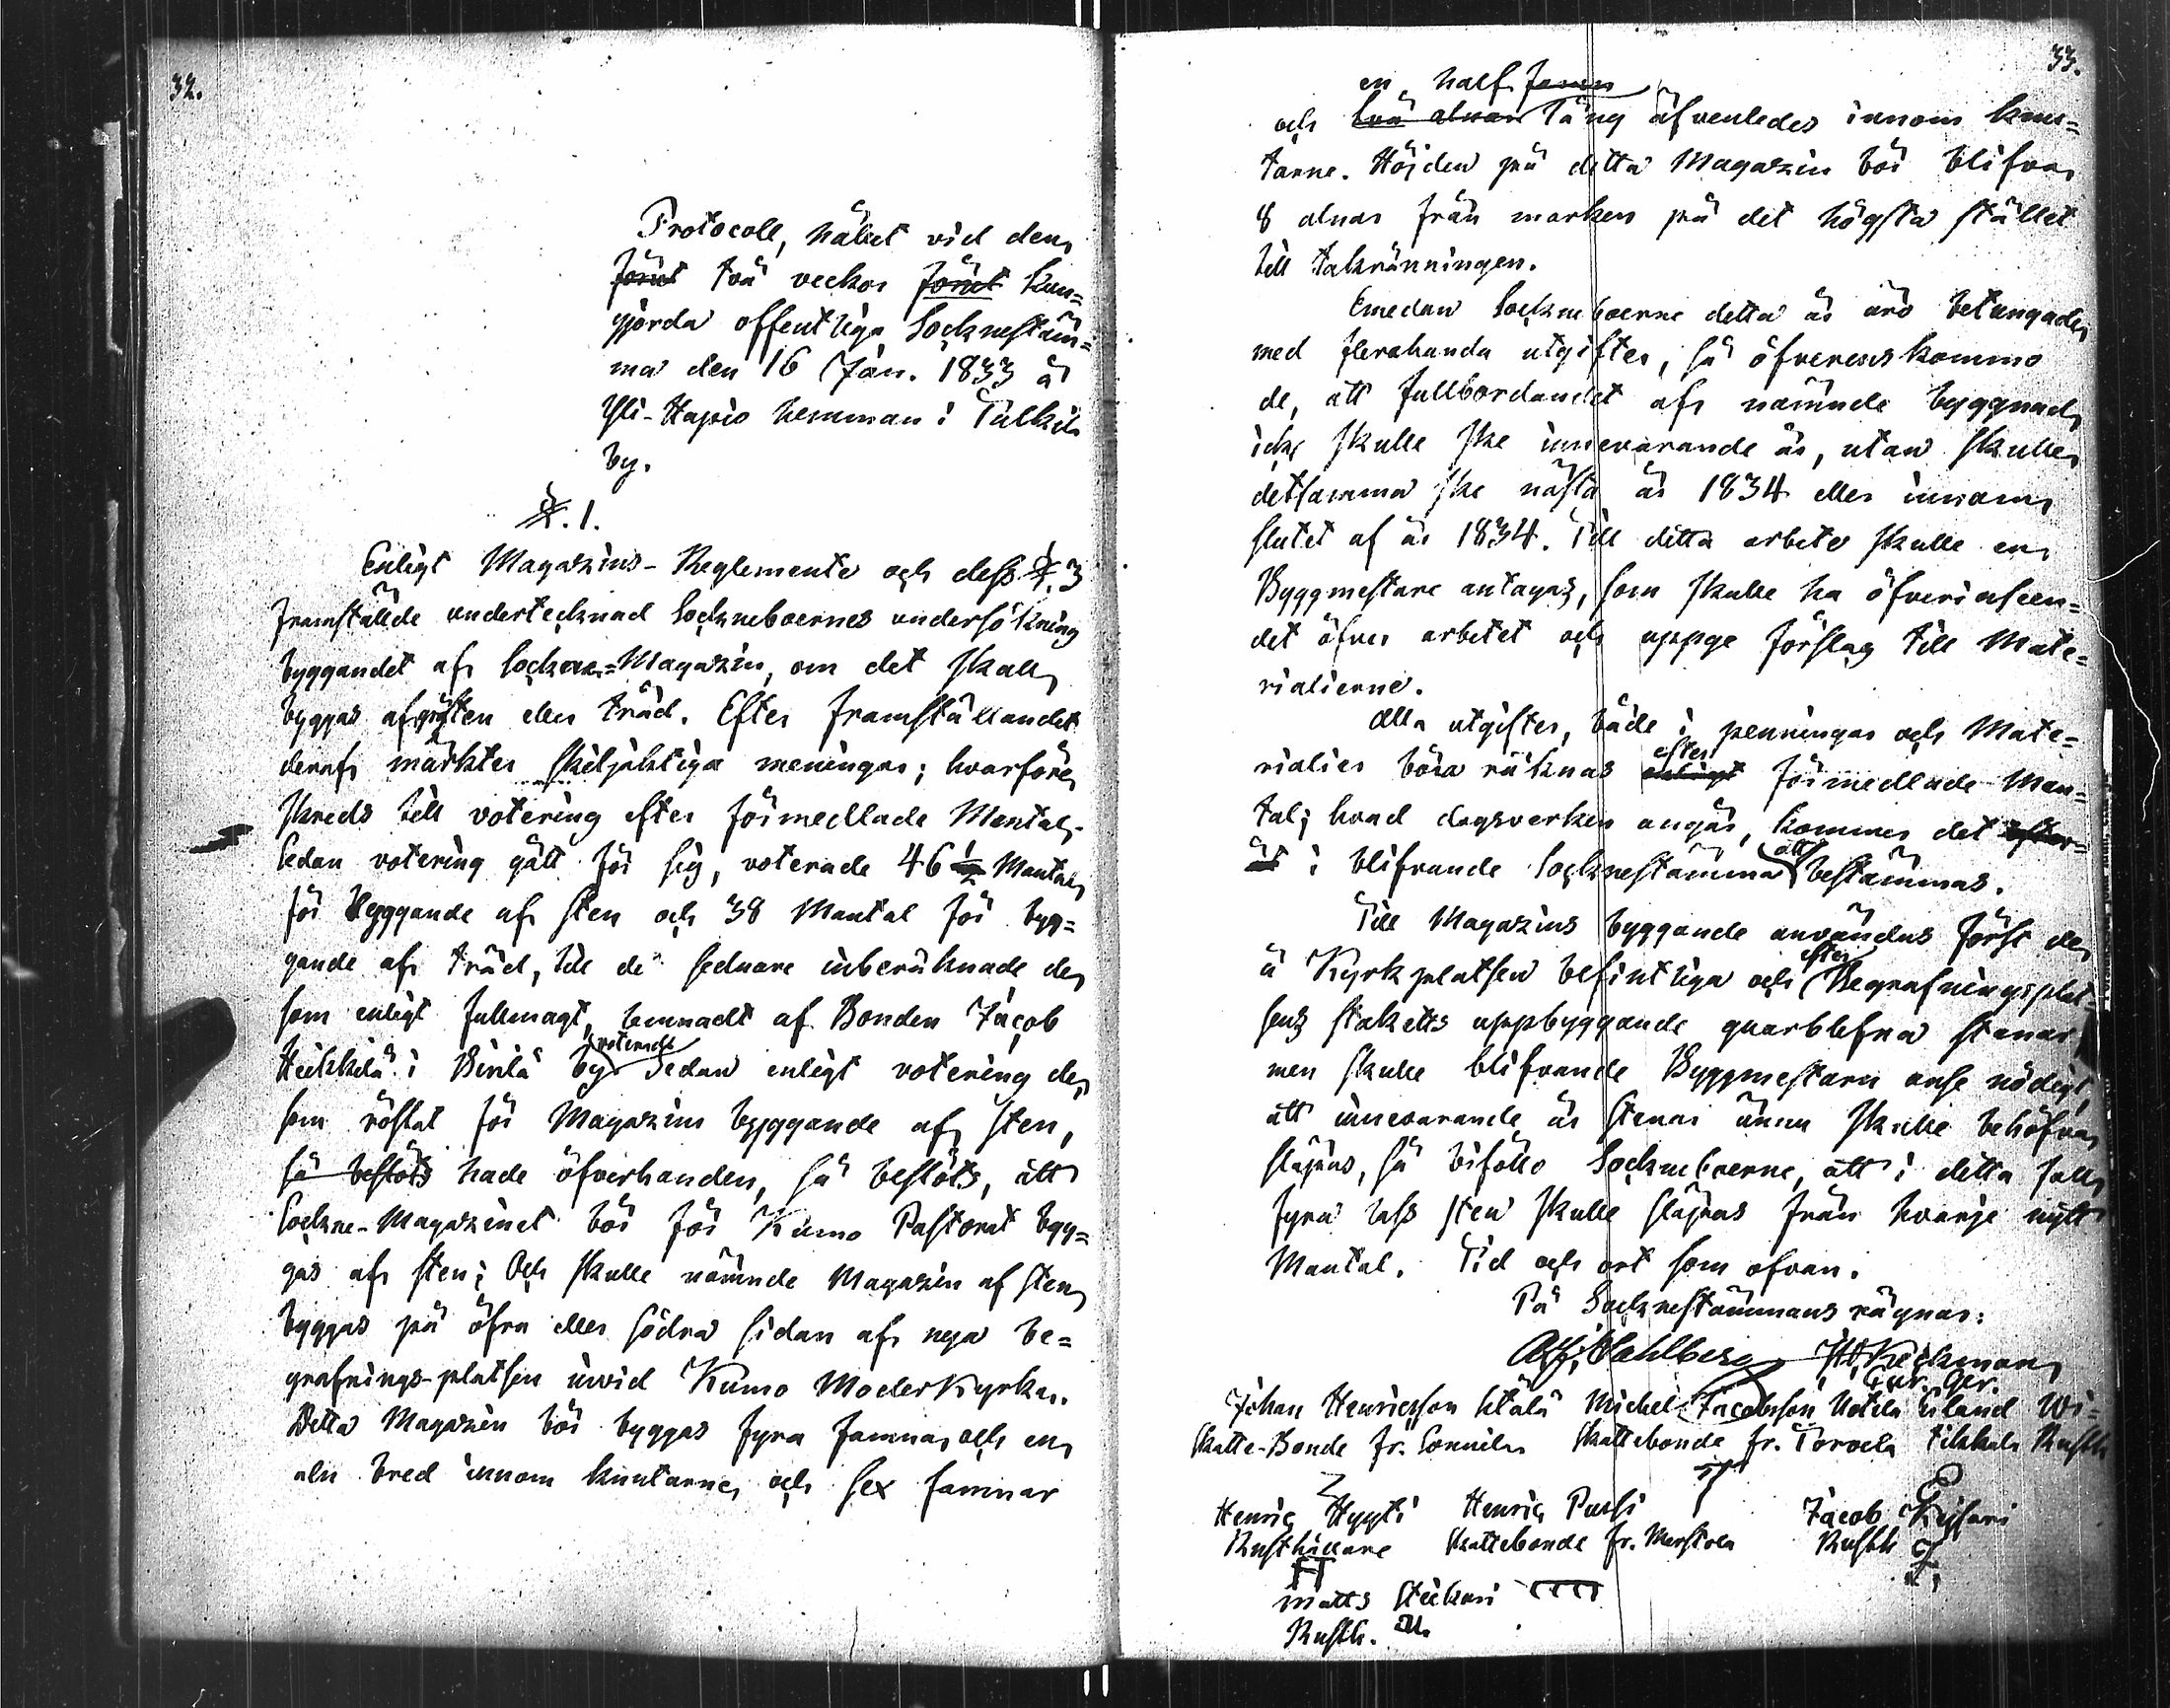 32.
Protocoll, hållet vid den
förut två veckor förut kun-
gjorda offentliga Socknestäm-
ma den 16 Jan. 1833 å
Yli-Hapio hemman i Tulkila
by.
§. 1.
Enligt Magazins-Reglemente och dess §. 3
framstälde undertecknad Sockneboernes undersökning
byggandet af Sockne-Magazin, om det skall
byggas af sten eller träd. Efter framställandet
deraf märktes skiljaktiga meningar; hvarföre
skreds till votering efter förmedlade Mantal.
Sedan votering gått för sig, voterade 46 1/2 Mantal
för byggande af sten och 38 Mantal för byg-
gande af träd, till de sednare inberäknade de
som enligt fullmagt, lemnadt af Bonden Jacob
Heikkilä i Birilä by voterade Sedan enligt votering de
som röstat för Magazins byggande af sten,
så beslöts hade öfverhanden, så beslöts, att
Sockne-Magazinet bör för Kumo Pastorat byg-
gas af sten; Och skulle nämnde Magazin af sten
byggas på öfra eller södra sidan af nya be-
grafnings-platsen invid Kumo Moderkyrka.
Detta Magazin bör byggas fyra famnar och en
aln bred innom knutarne och sex famnar
33.
en half famn
och två alnar lång äfvenledes innom knu-
tarne. Höjden på detta Magazin bör blifva
8 alnar från marken på det högsta stället
till takränningen.
Emedan Sockneboerne detta år äro betungade
med flerahanda utgifter, så öfverenskommo
de, att fullbordandet af nämnde byggnad
icke skulle ske innevarande år, utan skulle
detsamma ske nästa år 1834 eller innom
slutet af år 1834. Till detta arbete skulle en
Byggmestare antagas, som skulle ha öfverinseen-
det öfver arbetet och uppge förslag till Mate-
rialierne.
Alla utgifter, både i penningar och Mate-
rialier böra räknas enligt efter förmedlade Man-
tal; hvad dagsverken angår, kommer det
i blifvande Socknestämma att bestämmas.
Till Magazins byggande användas först de
å Kyrkplatsen befintliga och efter Begrafningsplat-
sens staketts uppbyggande quarblefna stenar,
men skulle blifvande Byggmestarn anse nödigt,
att innevarande år stenar ännu skulle behöfva
släpas, så biföllo Sockneboerne, att i detta fall
fyra lass sten skulle släpas från hvarje nytt
Mantal. Tid och ort som ofvan.
På Socknestämmans vägnar:
Sahlberg
Johan Henricsson Utälä Michel Jacobsson Uotila Eland Wi-
Skatte-Bonde fr. Sonnila Skattebonde fr. Torvela Tikkala Rusth.
Henric Hyyti Henric Pussi Jacob Keisari
Rusthållare Skattebonde fr. Merstola Rusth
Matts Steikari
Rusth.